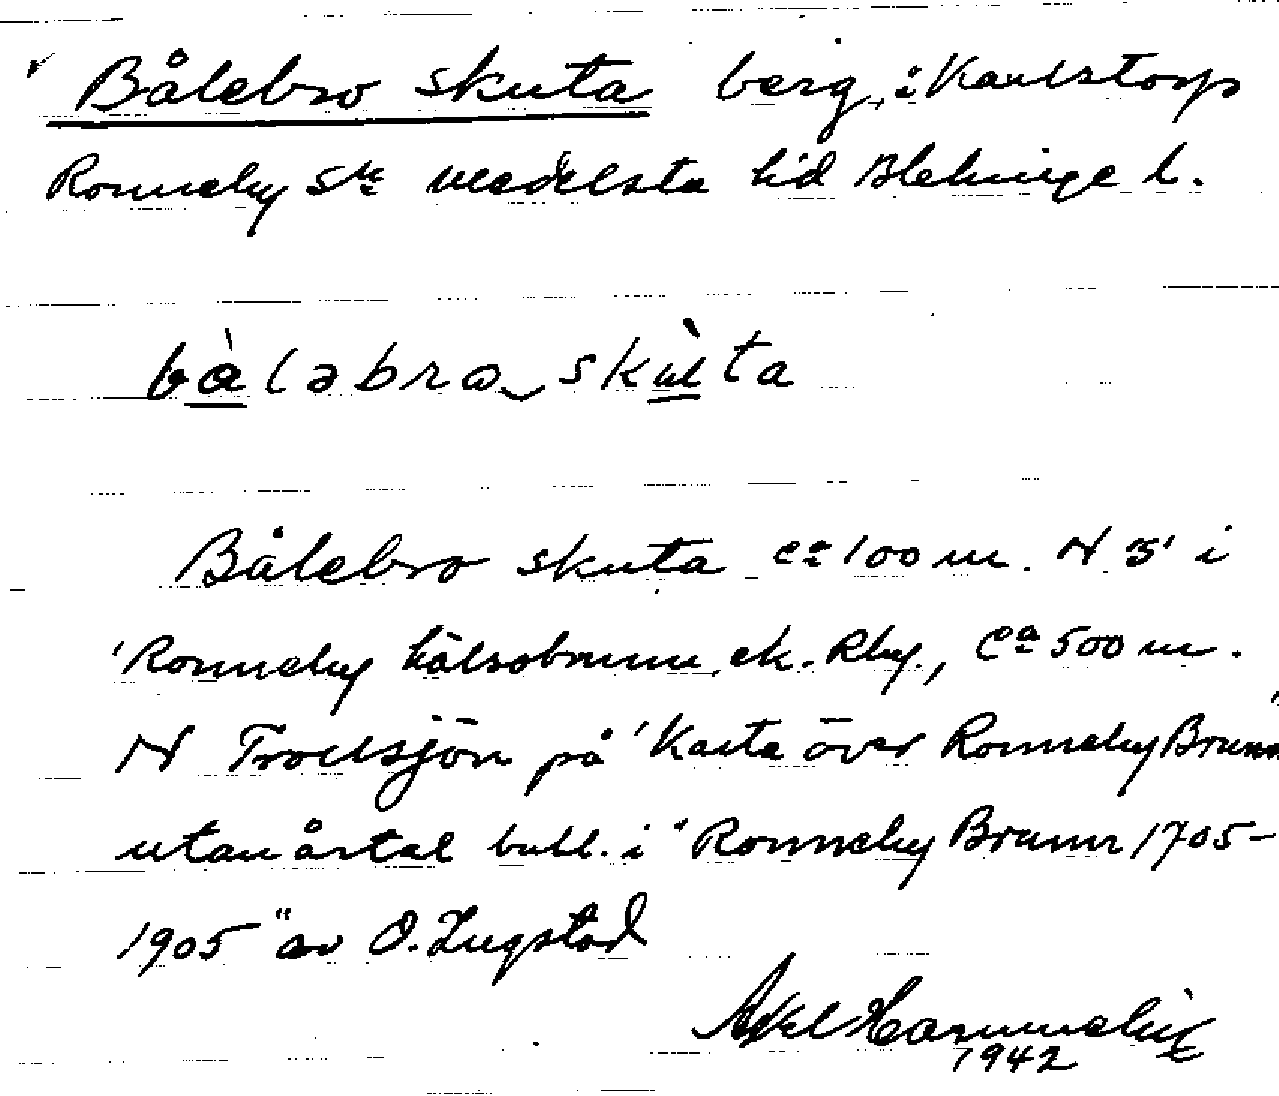 Bålebro skuta berg, i Karlstorp
Ronneby sn Medelsta hd Blekinge l.
bàləbro skùta
Bålebro skuta ca 100 m. N 5' i
'Ronneby hälsobrunn, ek. Rby., ca 500 m.
N Trollsjön på 'Karta över Ronneby Brunn'
utan årtal bill. i "Ronneby Brunn 1705-
1905" av O. Lugstad
Axel
1942